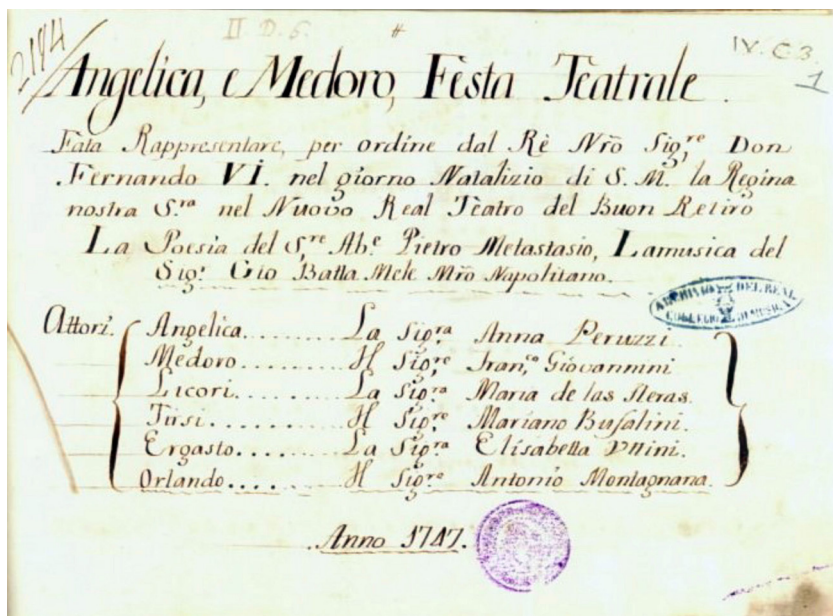 2194
II. D. 6.
#
IV. C 3.
1
Angelica, e Medoro, Festa Teatrale.
Fata Rappresentare, per ordine dal Rè Nrõ Sig.re Don
Fernando VI. nel giorno Natalizio di S. M. la Regina
nostra S.ra nel Nuovo Real Teatro del Buon Retiro
La Poesia del S.re Ab.e Pietro Metastasio, Lamusica del
Sig.r Gio Batta Mele Mrõ Napolitano.
ARCHIVIO DEL REAL
COLLEGIO DI MUSICA
Attori.
Angelica.......... La Sig.ra Anna Peruzzi.
Medoro......... Il Sig.re Fran.co Giovannini
Licori.......... La Sig.ra Maria de las Heras.
Tirsi.......... Il Sig.re Mariano Bufalini.
Ergasto........ La Sig.ra Elisabetta Uttini.
Orlando...... Il Sig.re Antonio Montagnana.
Anno 1747.